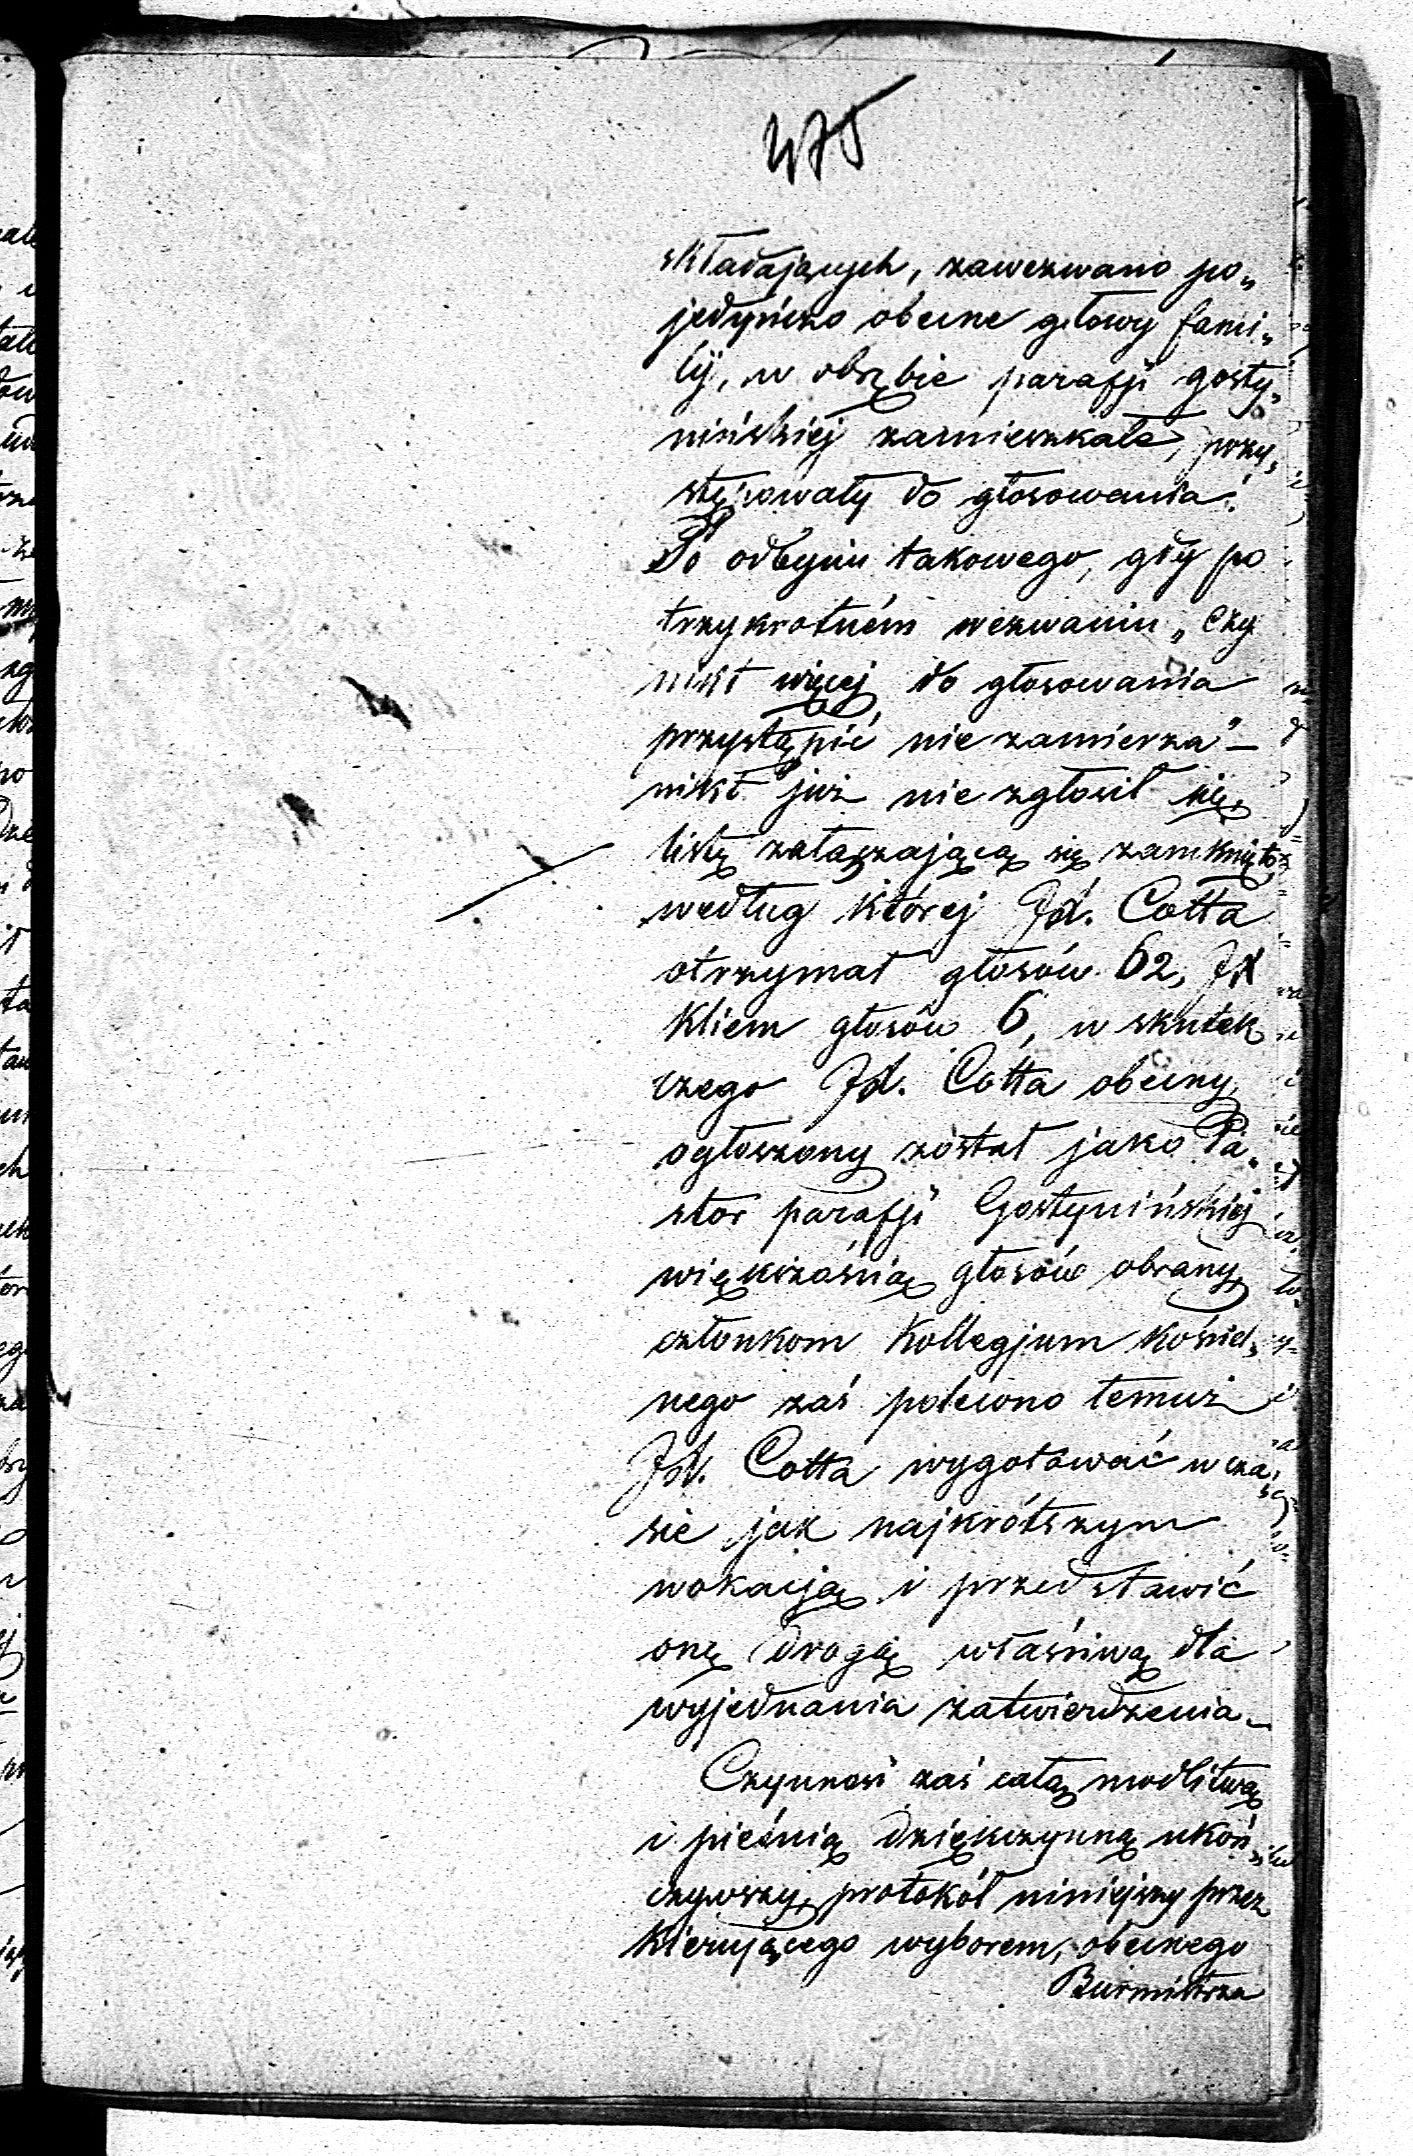 475
składających, zawezwano po„
jedyńczo obecne głowy fami„
lij, w obrębie parafji gosty„
nińskiej zamieszkałe, przy„
stępowały do głosowania.
Po odbyciu takowego, gdy po
trzykrotném wezwaniu „czy
nikt więcej do głosowania
przystąpić nie zamierza" –
nikt już nie zgłosił się,
listę załączającą się zamknięto,
według której Xd. Cotta
otrzymał głosów 62, Xd
Kliem głosów 6, w skutek
czego Xd. Cotta obecny,
ogłoszony został jako Pa„
stor parafji Gostynińskiej
większością głosów obrany,
członkom Kollegjum Kościel„
nego zaś polecono temuż
Xd. Cotta wygotować w cza„
sie jak najkrótszym
wokacją i przedstawić
onę drogą właściwą dla
wyjednania zatwierdzenia. –
Czynność zaś całą modlitwą
i pieśnią dziękczynną ukoń
czywszy, protokół niniejszy przez
Kierującego wyborem, obecnego
Burmistrza